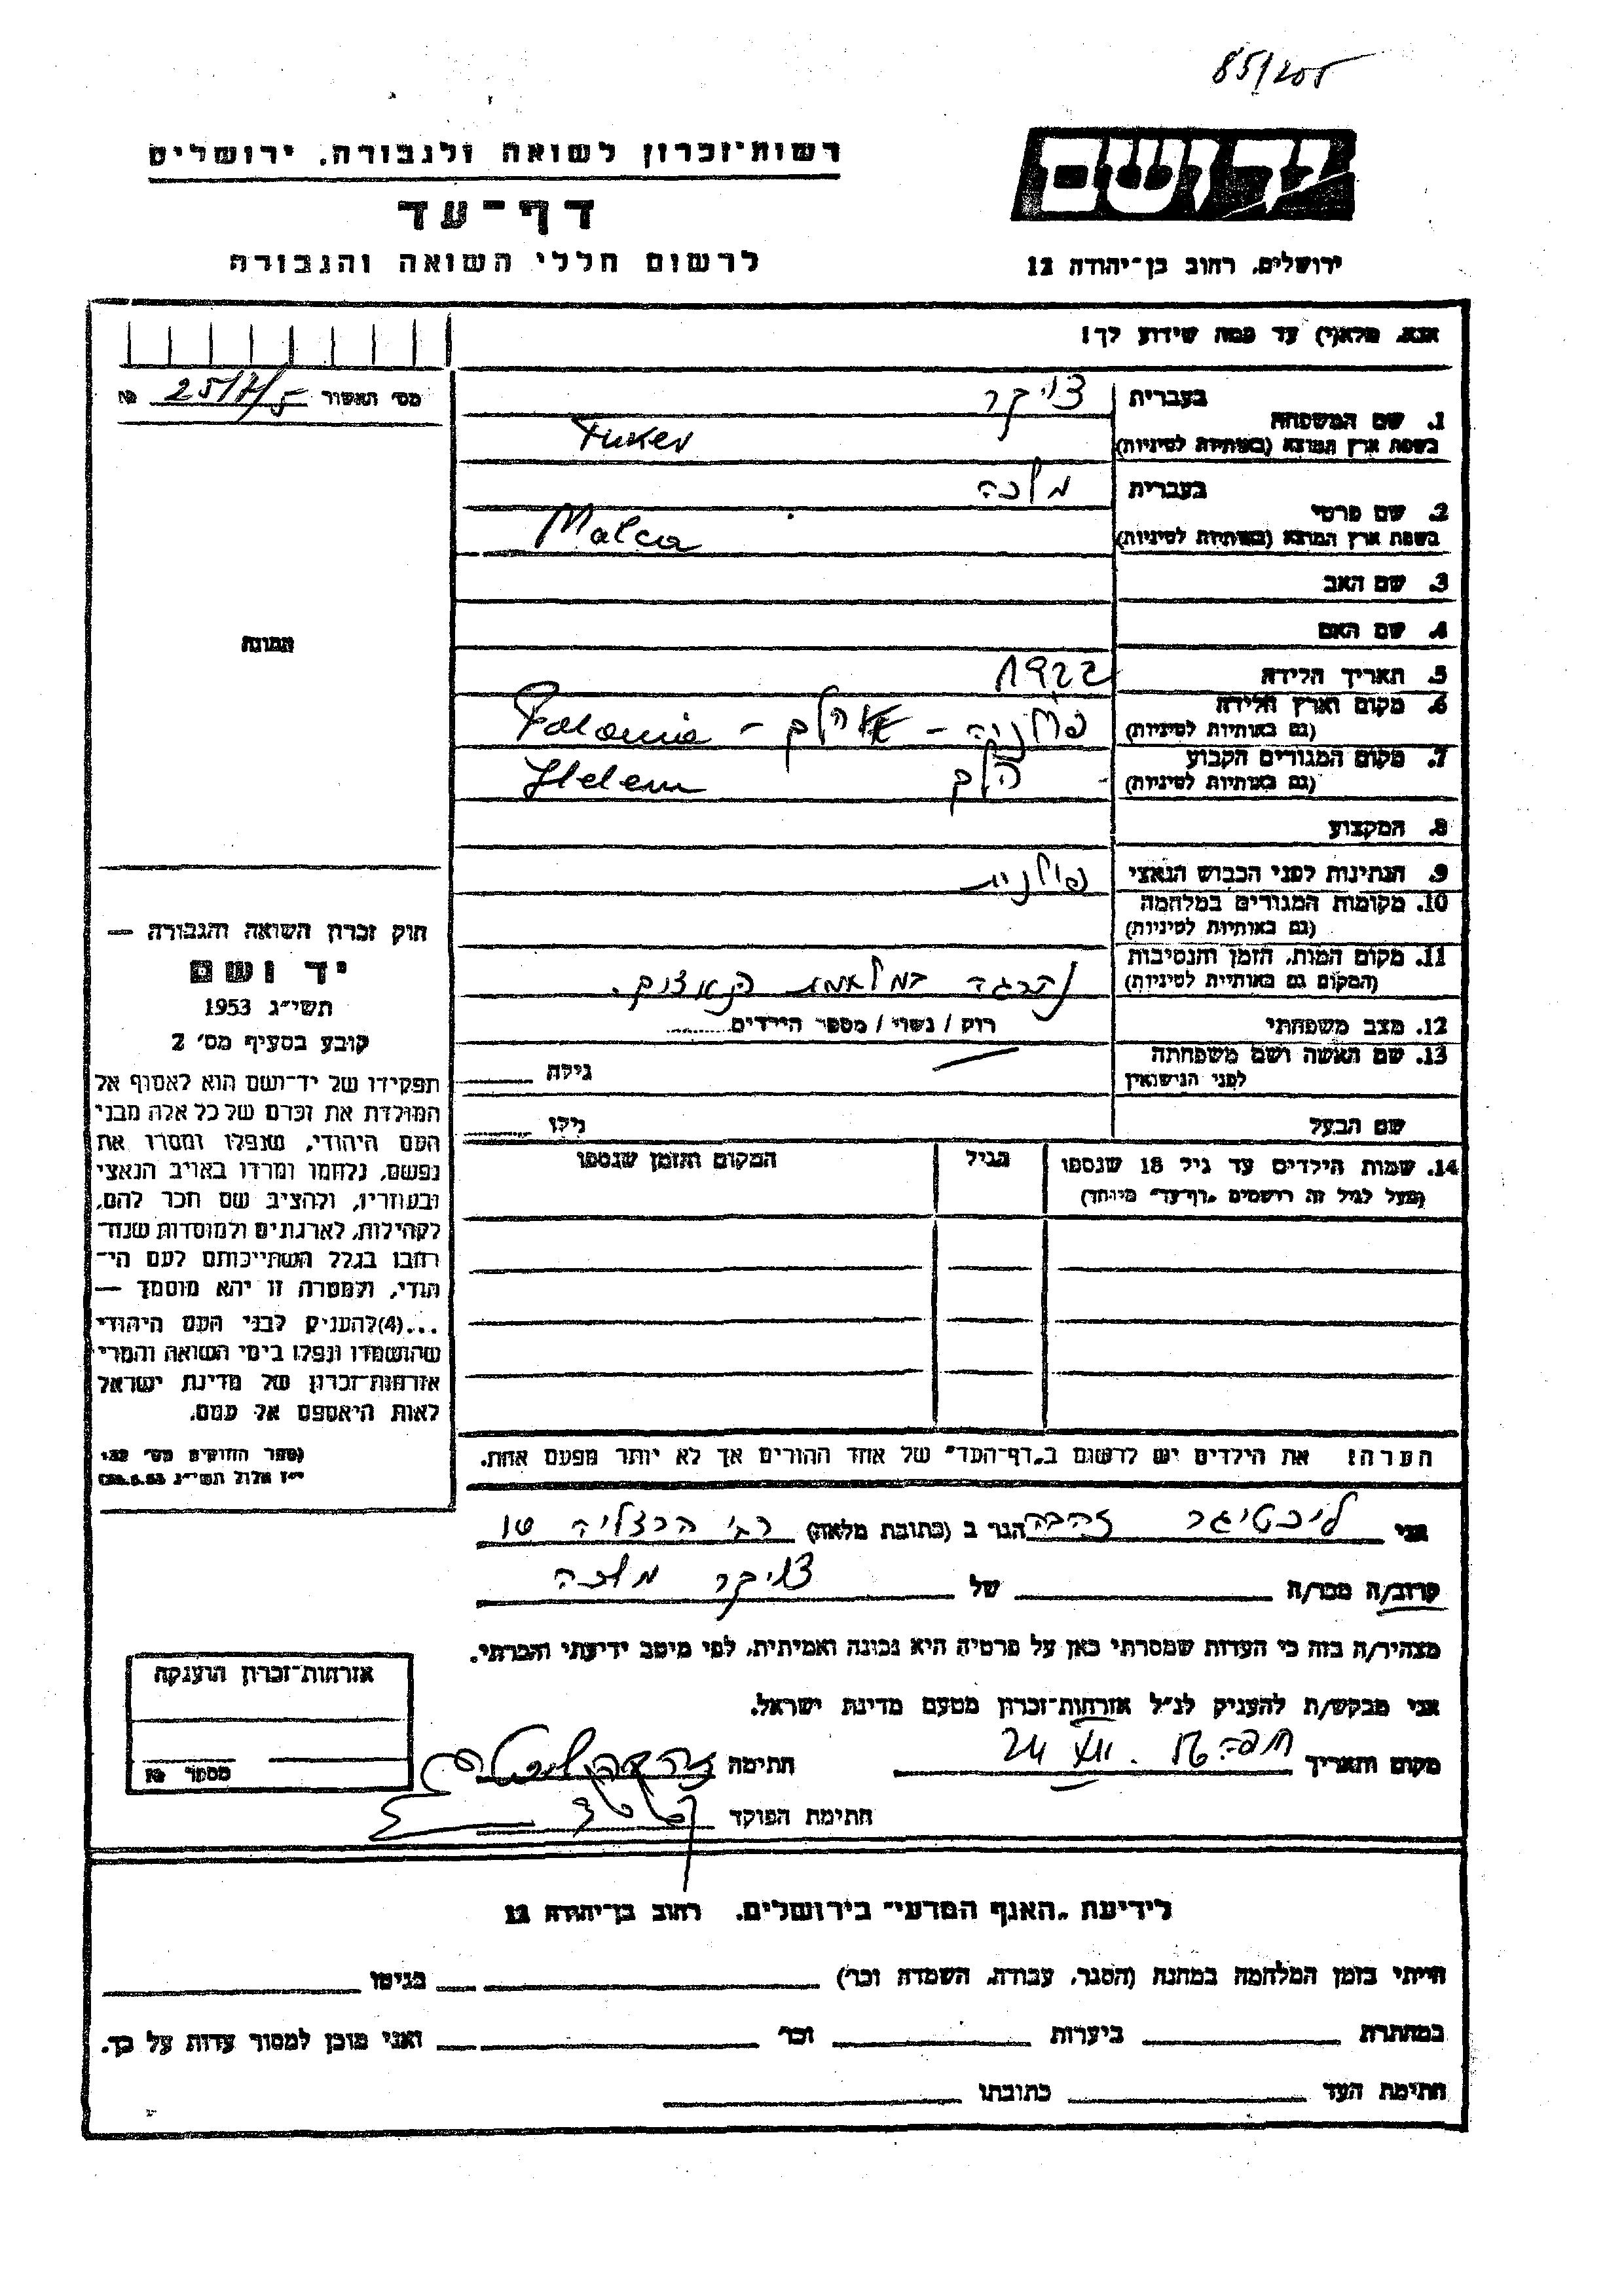 85/205
רשות־זכרון לשואה ולגבורה, ירושלים
יד ושם
דף־עד
ירושלים, רחוב בן־יהודה 12
לרשום חללי השואה והגבורה
אנא, מלא(י) עד כמה שידוע לך!
מס׳ האשור № 25/7/5
1. שם המשפחה בעברית צויקר
בשפת ארץ המוצא (באותיות לטיניות)
2. שם פרטי בעברית מלכה
בשפת ארץ המוצא (באותיות לטיניות) Malca
3. שם האב
4. שם האם
תמונה
5. תאריך הלידה 1922
6. מקום וארץ הלידה
(גם באותיות לטיניות) פולניה - Polonia
7. מקום המגורים הקבוע
(גם באותיות לטיניות) הלם Helem
8. המקצוע
9. הנתינות לפני הכבוש הנאצי פולנית
10. מקומות המגורים במלחמה
(גם באותיות לטיניות)
11. מקום המות, הזמן והנסיבות
(המקום גם באותיות לטיניות) נהרגה במלחמת הנאצים.
12. מצב משפחתי רוק / נשוי / מספר הילדים
13. שם האשה ושם משפחתה
לפני הנישואין גילה
שם הבעל גילו
14. שמות הילדים עד גיל 18 שנספו הגיל המקום והזמן שנספו
(מעל לגיל זה רושמים „דף־עד״ מיוחד)
הערה! את הילדים יש לרשום ב„דף־העד״ של אחד ההורים אך לא יותר מפעם אחת.
חוק זכרון השואה והגבורה —
יד ושם
תשי״ג 1953
קובע בסעיף מס׳ 2
תפקידו של יד־ושם הוא לאסוף אל
המולדת את זכרם של כל אלה מבני
העם היהודי, שנפלו ומסרו את
נפשם, נלחמו ומרדו באויב הנאצי
ובעוזריו, ולהציב שם וזכר להם,
לקהילות, לארגונים ולמוסדות שנח־
רבו בגלל השתייכותם לעם הי־
הודי, ולמטרה זו יהא מוסמך —
...(4)להעניק לבני העם היהודי
שהושמדו ונפלו בימי השואה והמרי
אזרחות־זכרון של מדינת ישראל
לאות היאספם אל עמם.
(ספר החוקים מס׳ 132,
י״ז אלול תשי״ג 28.8.53)
אני ליכטיגר זהבה הגר ב (כתובת מלאה) רח׳ הרצליה 10
קרוב/ה מכר/ה של צויקר מלכה
מצהיר/ה בזה כי העדות שמסרתי כאן על פרטיה היא נכונה ואמיתית, לפי מיטב ידיעתי והכרתי.
אני מבקש/ת להעניק לנ״ל אזרחות־זכרון מטעם מדינת ישראל.
מקום ותאריך חיפה חתימה
חתימת הפוקד
אזרחות־זכרון הוענקה
מספר №
לידיעת „האגף המדעי״ בירושלים, רחוב בן־יהודה 12
הייתי בזמן המלחמה במחנה (הסגר, עבודה, השמדה וכו׳) בגיטו
במחתרת ביערות וכו׳ ואני מוכן למסור עדות על כך.
חתימת העד כתובתו